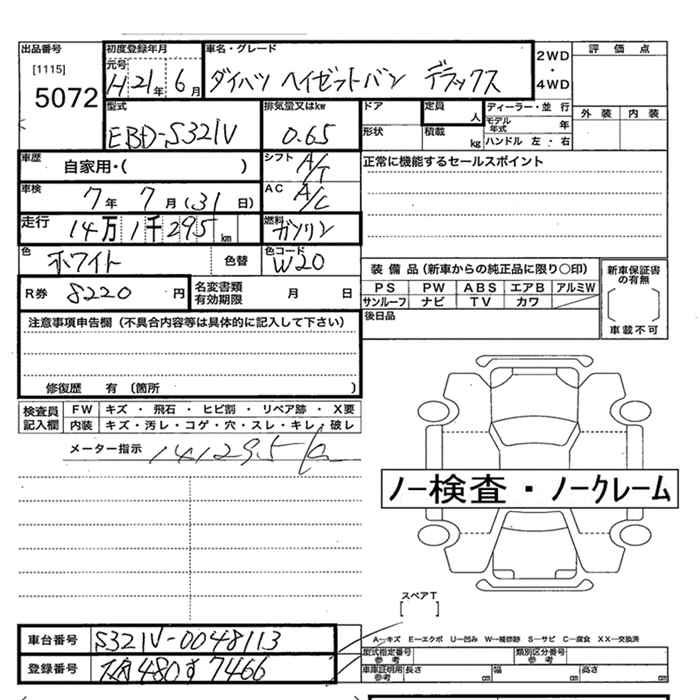 出品番号 初度登録年月 車名・グレード 2WD・4WD 評価点
[1115] 元号 H21年 6月 ダイハツ ハイゼットバン デラックス
5072
型式 排気量又はkw ドア 定員 人 ディーラー・並行 外装 内装
EBD-S321V 0.65 形状 積載 kg モデル年式 年
ハンドル 左・右
車歴 自家用・( ) シフト A/T 正常に機能するセールスポイント
車検 7年 7月(31日) AC A/C
走行 14万1千295km 燃料 ガソリン
色 ホワイト 色替 色コード W20
装備品(新車からの純正品に限り○印) 新車保証書の有無
R券 8220円 名変書類有効期限 月 日 PS PW ABS エアB アルミW
サンルーフ ナビ TV カワ 車載不可
注意事項申告欄(不具合内容等は具体的に記入して下さい) 後日品
修復歴 有 (箇所 )
検査員記入欄 FW キズ・飛石・ヒビ割・リペア跡・X要
内装 キズ・汚レ・コゲ・穴・スレ・キレ・破レ
メーター指示 141295km
ノー検査・ノークレーム
スペアT
[ ]
車台番号 S321V-0048113
A―キズ E―エクボ U―凹み W―補修跡 S―サビ C―腐食 XX―交換済
登録番号 480す7466
型式指定番号 参考 類別区分番号 参考
車庫証明用 参考 長さ cm 幅 cm 高さ cm